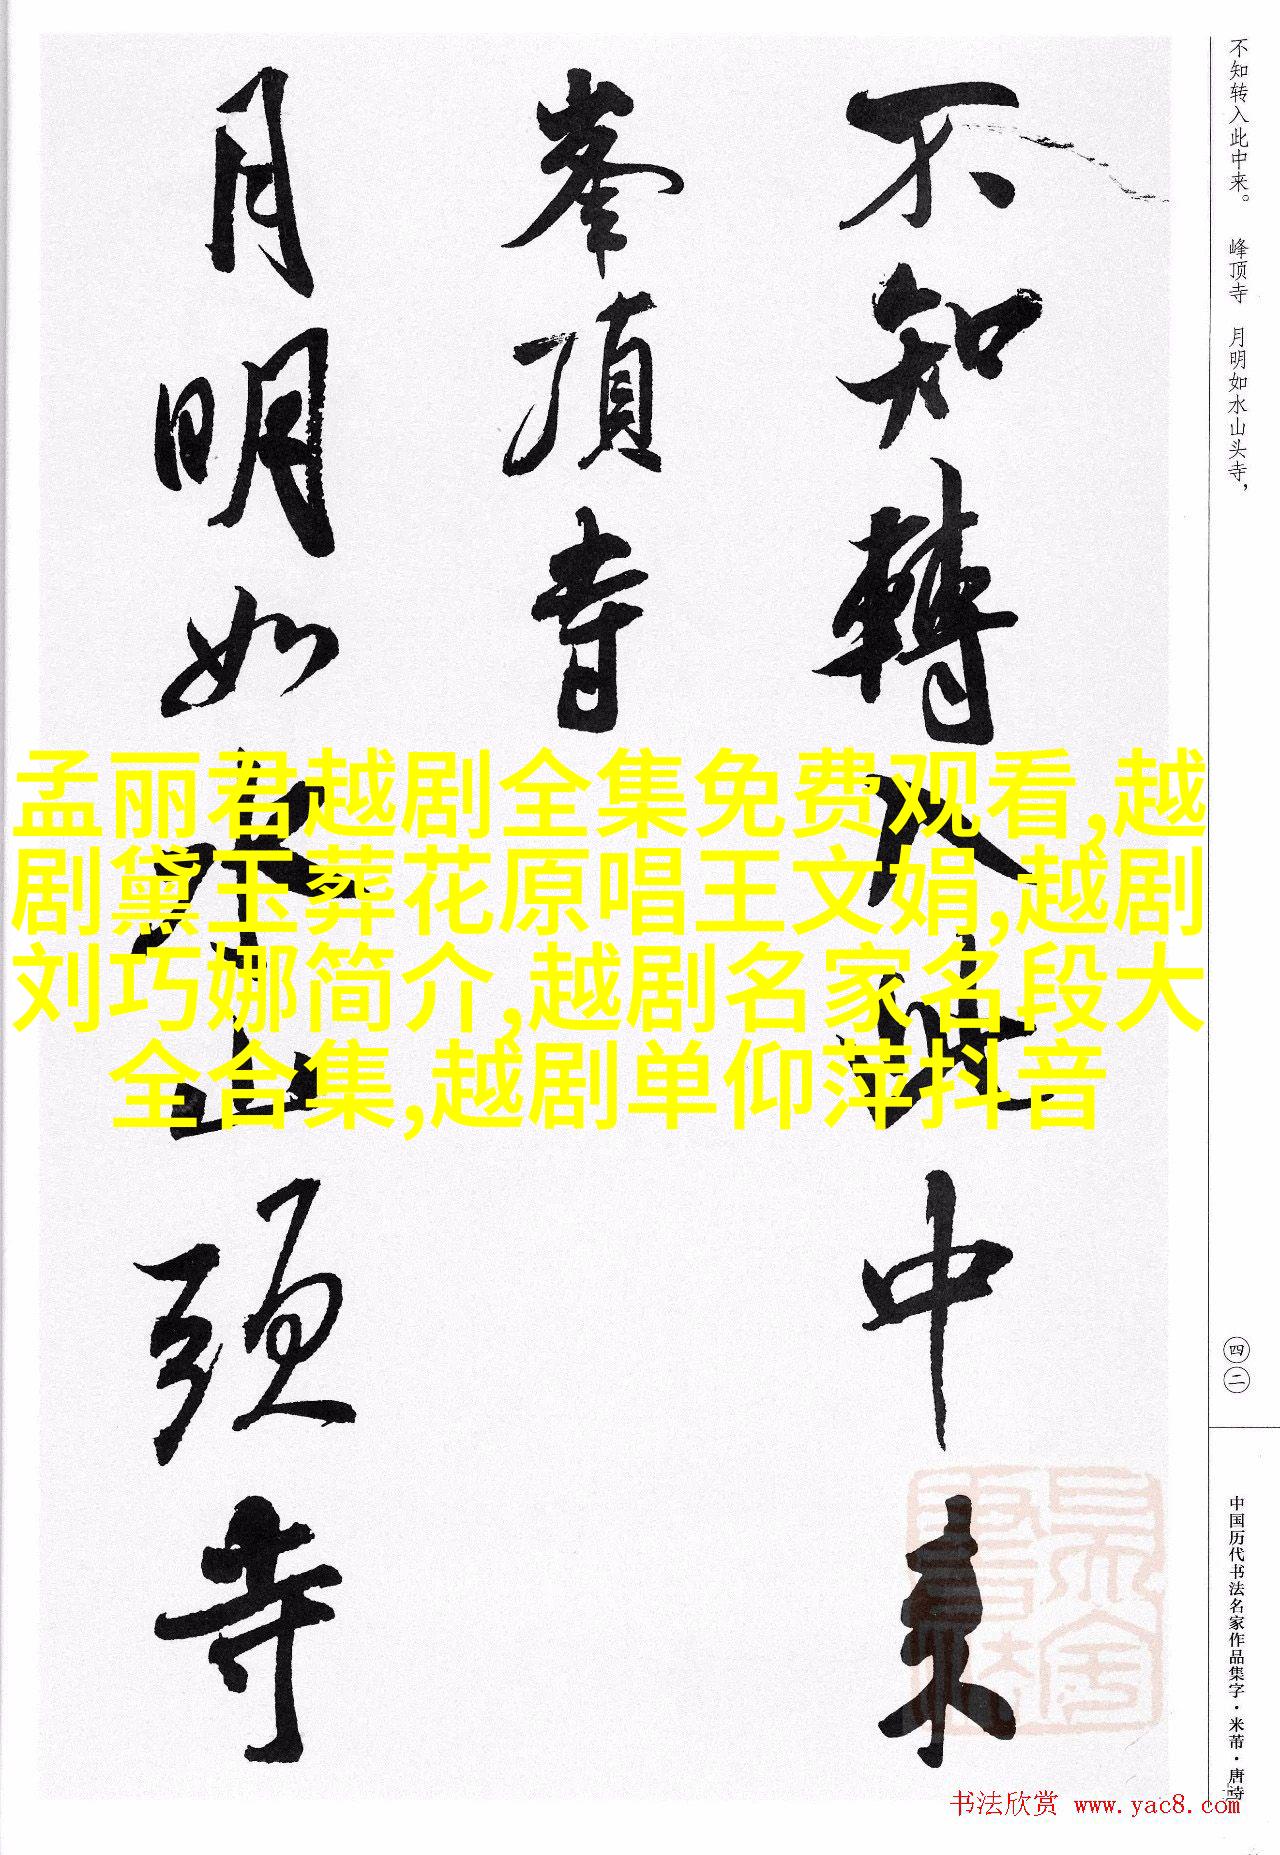 不知转入此中来。 峰顶寺 月明如水山头寺，
不知轉入此中来
峯頂寺
月明如水山頭寺
孟丽君越剧全集免费观看,越
剧黛玉葬花原唱王文娟,越剧
刘巧娜简介,越剧名家名段大
全合集,越剧单仰萍抖音
四二
中国历代书法名家作品集字·米芾·唐诗
书法欣赏 www.yac8.com